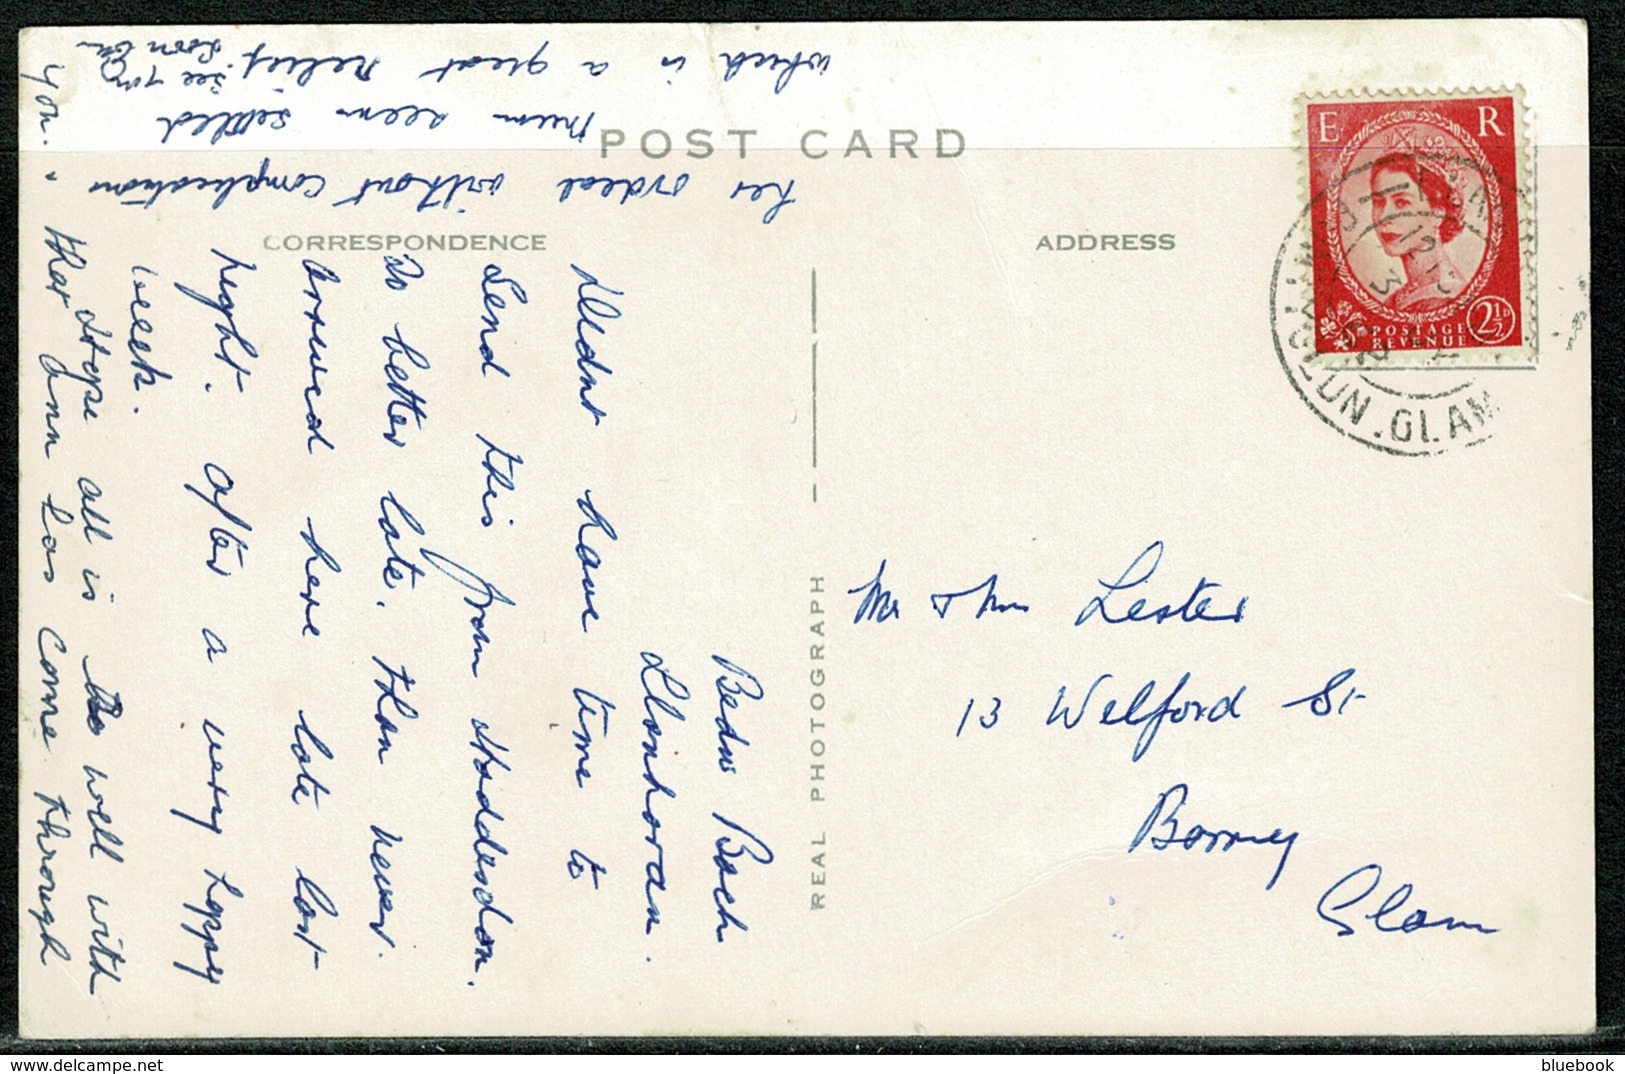 POST CARD
CORRESPONDENCE
ADDRESS
REAL PHOTOGRAPH
E R
POSTAGE
REVENUE
2½D
GLAM
Bedw Bach
Llanhoran.
Didnt have time to
Send this from Hoddesdon.
So better late. than never.
Arrived here late last
night. after a very happy
week.
Hope all is well with
you.
Her Ann has come through
her ordeal without complications
Mum seems settled
which is a great relief.
See you
Soon
Mr & Mrs Lester
13 Welford St
Barry
Glam
delcampe.net
bluebook